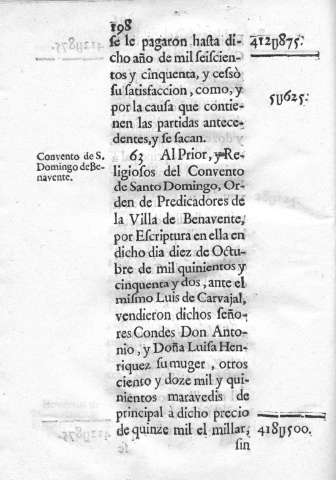 198
se le pagaron hasta di-
cho año de mil seiscien-
tos y cinquenta, y cessò
su satisfaccion, como, y
por la causa que contie-
nen las partidas antece-
dentes, y se sacan.
412U875.
5U625.
Convento de S.
Domingo de Be-
navente.
63 Al Prior, y Re-
ligiosos del Convento
de Santo Domingo, Or-
den de Predicadores de
la Villa de Benavente,
por Escriptura en ella en
dicho dia diez de Octu-
bre de mil quinientos y
cinquenta y dos, ante el
mismo Luis de Carvajal,
vendieron dichos seño-
res Condes Don Anto-
nio, y Doña Luisa Hen-
riquez su muger, otros
ciento y doze mil y qui-
nientos maravedis de
principal à dicho precio
de quinze mil el millar,
418U500.
sin